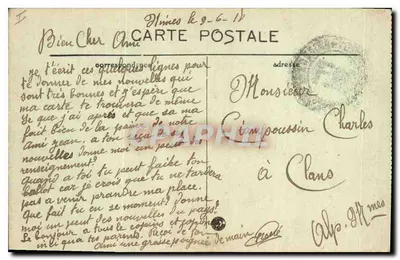 Nimes le 9-6-18
Bien Cher Ami
CARTE POSTALE
CORRESPONDANCE
adresse
Je t'écrit ces quelques lignes pour
te donner de mes nouvelles qui
sont très bonnes et j'espère que
ma carte te trouvera de même
Je que j'ai après et que sa ma
fait bien de la peine de notre
Ami Jean, a ton reçu des
nouvelles donne moi un peut de
renseignement.
Quand a toi tu peut faire ton
ballot car je crois que tu ne tardera
pas a venir prandre ma place.
Que fait tu en se moment donne
moi un peut des nouvelles du pays.
Le bonjour a tous le copains et
ici qua tes parents. Reçoi de ton
ami une grosse poignée de main
Monsieur
Ciampoussin Charles
à Clans
Alp. Mmes